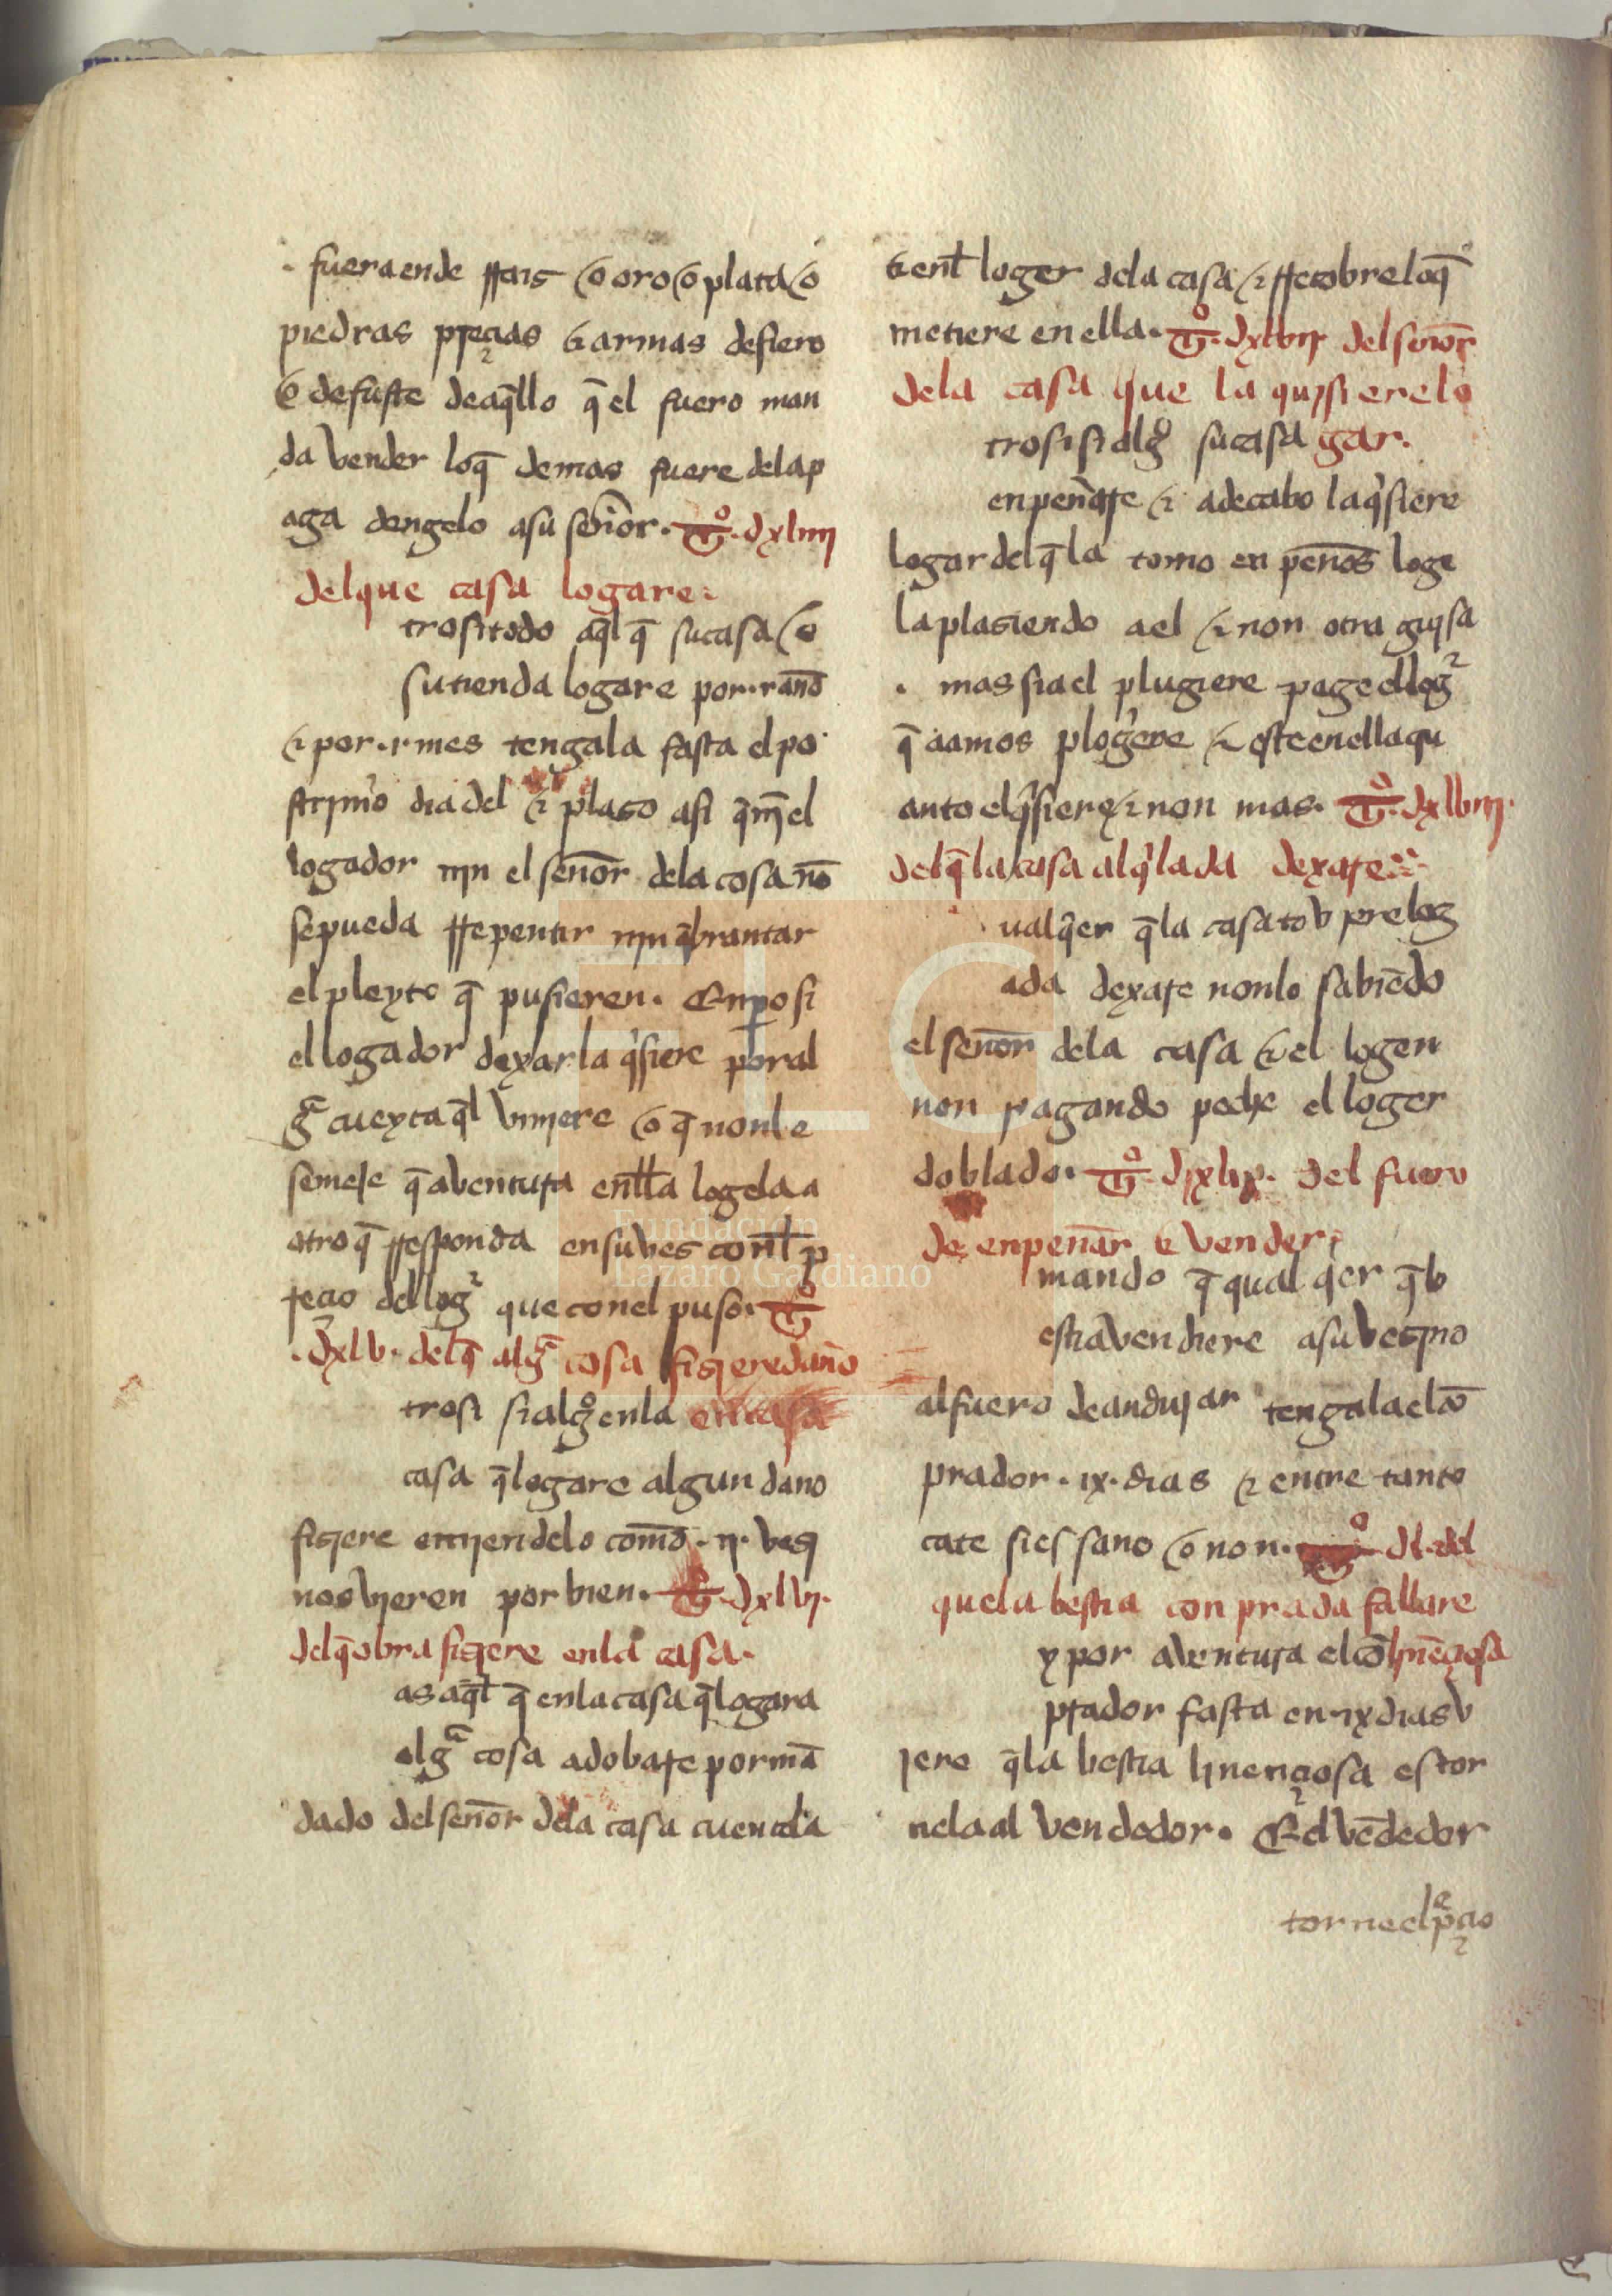 . fuera ende rrais o oro o plata o
piedras preçias & armas de fiero
o de fuste de aq̄llo q̄ el fuero man
da vender loq̄ demas fuere dela p
aga dengelo asu señor. Tº. dxliiij
del que casa logare:
trosi todo aq̄l q̄ su casa o
su tienda logare por .i. año
& por .i. mes tengala fasta el po
strimo dia del & plaso asi q̄ nj̄ el
logador njn el señor dela cosa nō
se pueda rrepentir njn q̄brantar
el pleyto q̄ pusieren. Enpo si
el logador dexar la qisiere por al
gª cueyta q̄l vinjere o q̄ non le
semeje q̄ aventura enlla logela a
otro q̄ rresponda en su ves conl p
reçio del logr que con el puso. Tº
.dxlv. delq̄ algª cosa fisjere daño
trosi si algº enla en casa
casa q̄ logare algun dano
fisjere emjendelo comō .ij. vesj
nos vieren por bien. Tº. dxlvj.
delq̄ obra fisjere enla casa.
as aq̄l q̄ enla casa q̄ logara
algª cosa adobare por mā
dado del señor dela casa cuentela
& enl loger dela casa & rrecobre loq̄
metiere en ella. Tº. dxlvij del señor
dela casa que la quisiere lo
trosi si algº su casa gar.
enpeñare & adecabo la qisiere
logar del q̄ la tomo en peños loge
la plasiendo a el & non otra gujsa
. mas si a el plugiere page el logr
q̄ aamos plogiere & este en ella qu
anto el qisiere & non mas. Tº. dxlviij.
delq̄ la casa alqilada dexare
ualqier q̄ la casa tovjere log
ada dexare non lo sabiēdo
el señor dela casa o el logen
non pagando peche el loger
doblado. Tº dxlix. del fuero
de enpeñar & vender
mando q̄ qual qer q̄ b
estia vendiere asu vesjno
al fuero de andujar tengala el cō
prador .ix. dias & entre tanto
cate si es sano o non. Tº dl. del
que la bestia con prada fallare
y por aventura el cō linēçiosa
prador fasta en .ix dias v
iere q̄ la bestia linençiosa es tor
nela al vendedor. E el vēdedor
torne el pçio
Fundación
Lázaro Galdiano
FLG